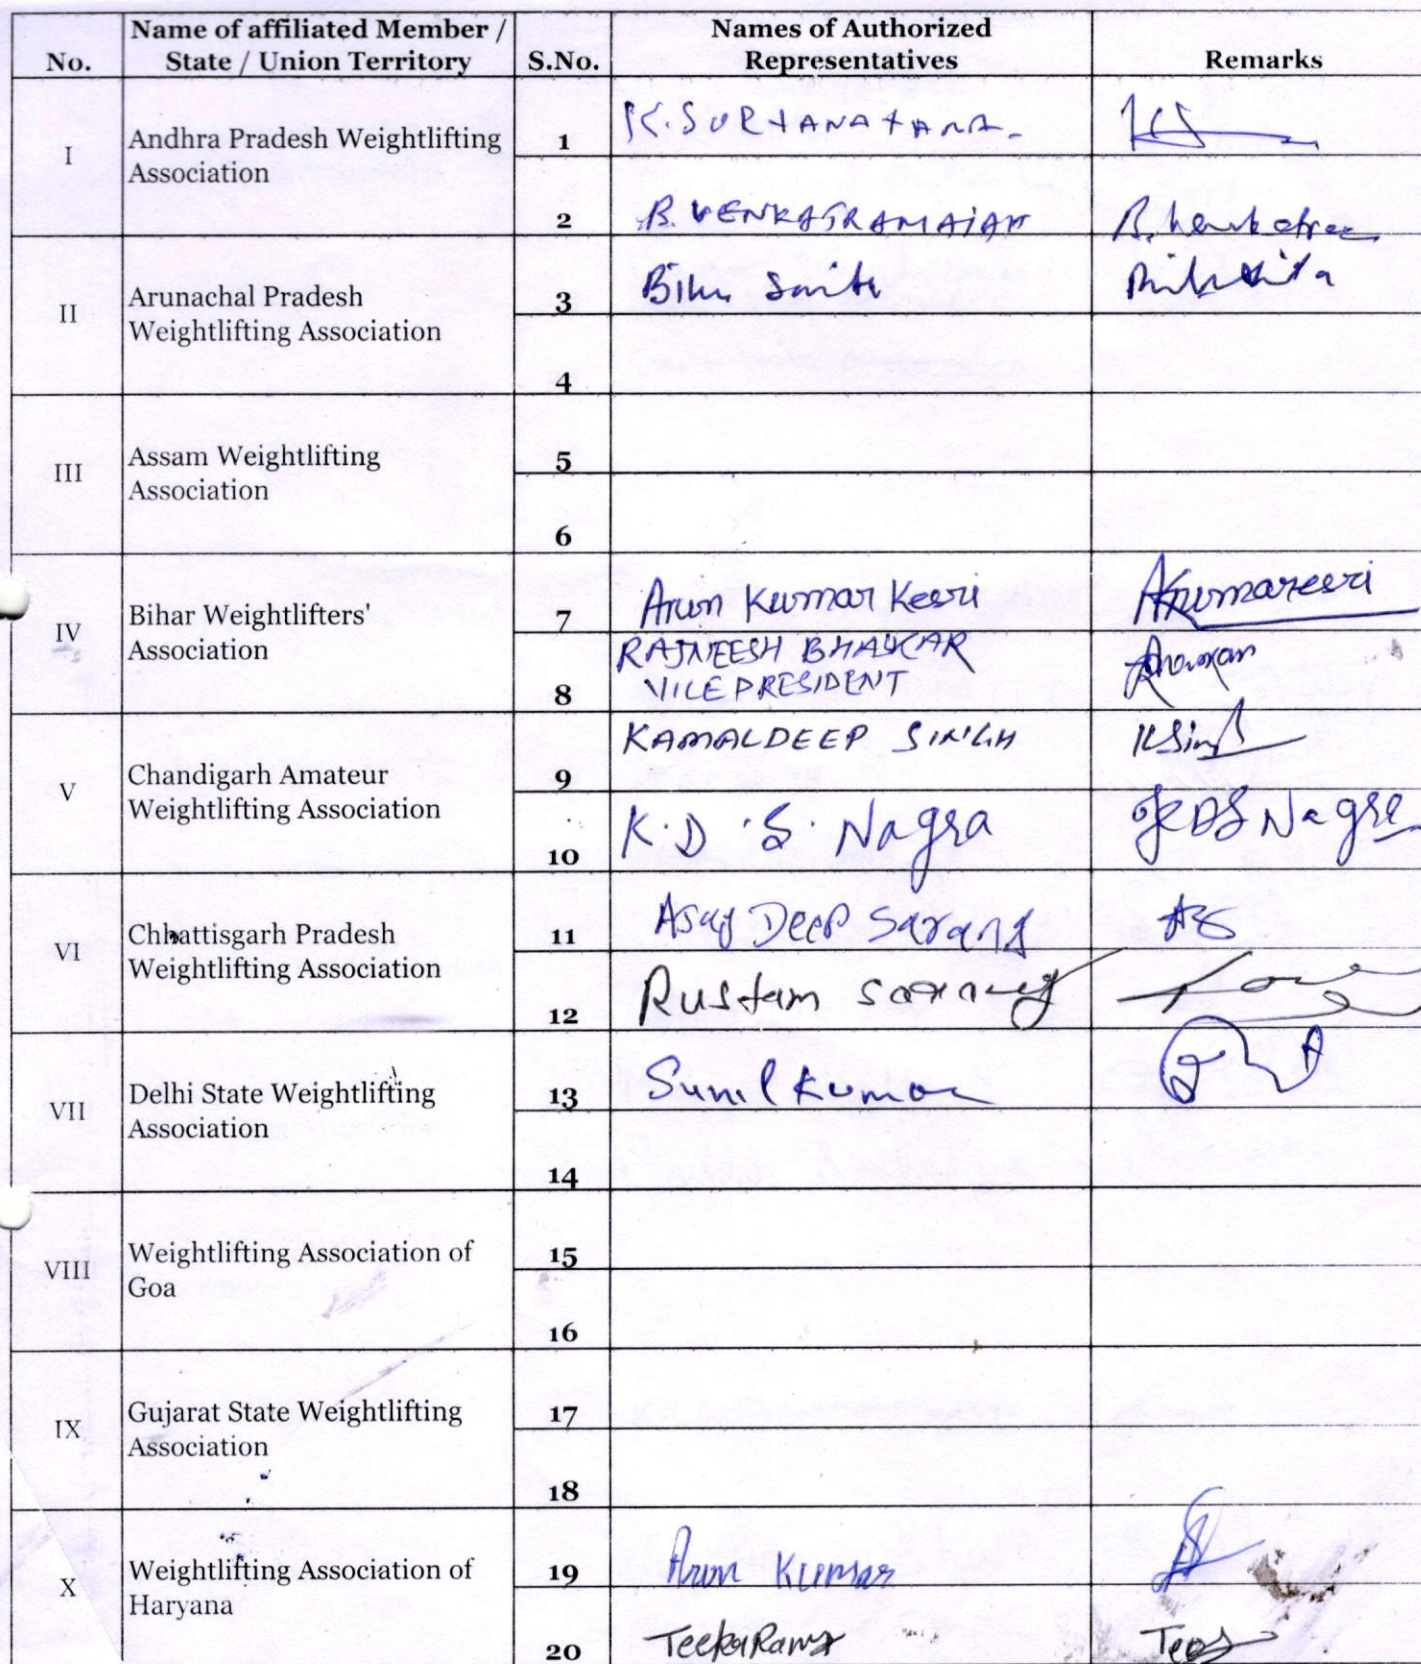 No. Name of affiliated Member / State / Union Territory S.No. Names of Authorized Representatives Remarks
I Andhra Pradesh Weightlifting Association
1 K. SURYANAYANA
2 B. VENKATRAMAIAH
II Arunachal Pradesh Weightlifting Association
3
4
III Assam Weightlifting Association
5
6
IV Bihar Weightlifters' Association
7 Arun Kumar Kesri
8 RAJNEESH BHASKAR
VICE PRESIDENT
V Chandigarh Amateur Weightlifting Association
9 KAMALDEEP SINGH KSingh
10 K.D.S. Nagra KDS Nagra
VI Chhattisgarh Pradesh Weightlifting Association
11 Ajay Deep Sarang AS
12 Rustam Sarang
VII Delhi State Weightlifting Association
13 Sunil Kumar
14
VIII Weightlifting Association of Goa
15
16
IX Gujarat State Weightlifting Association
17
18
X Weightlifting Association of Haryana
19 Arun Kumar
20